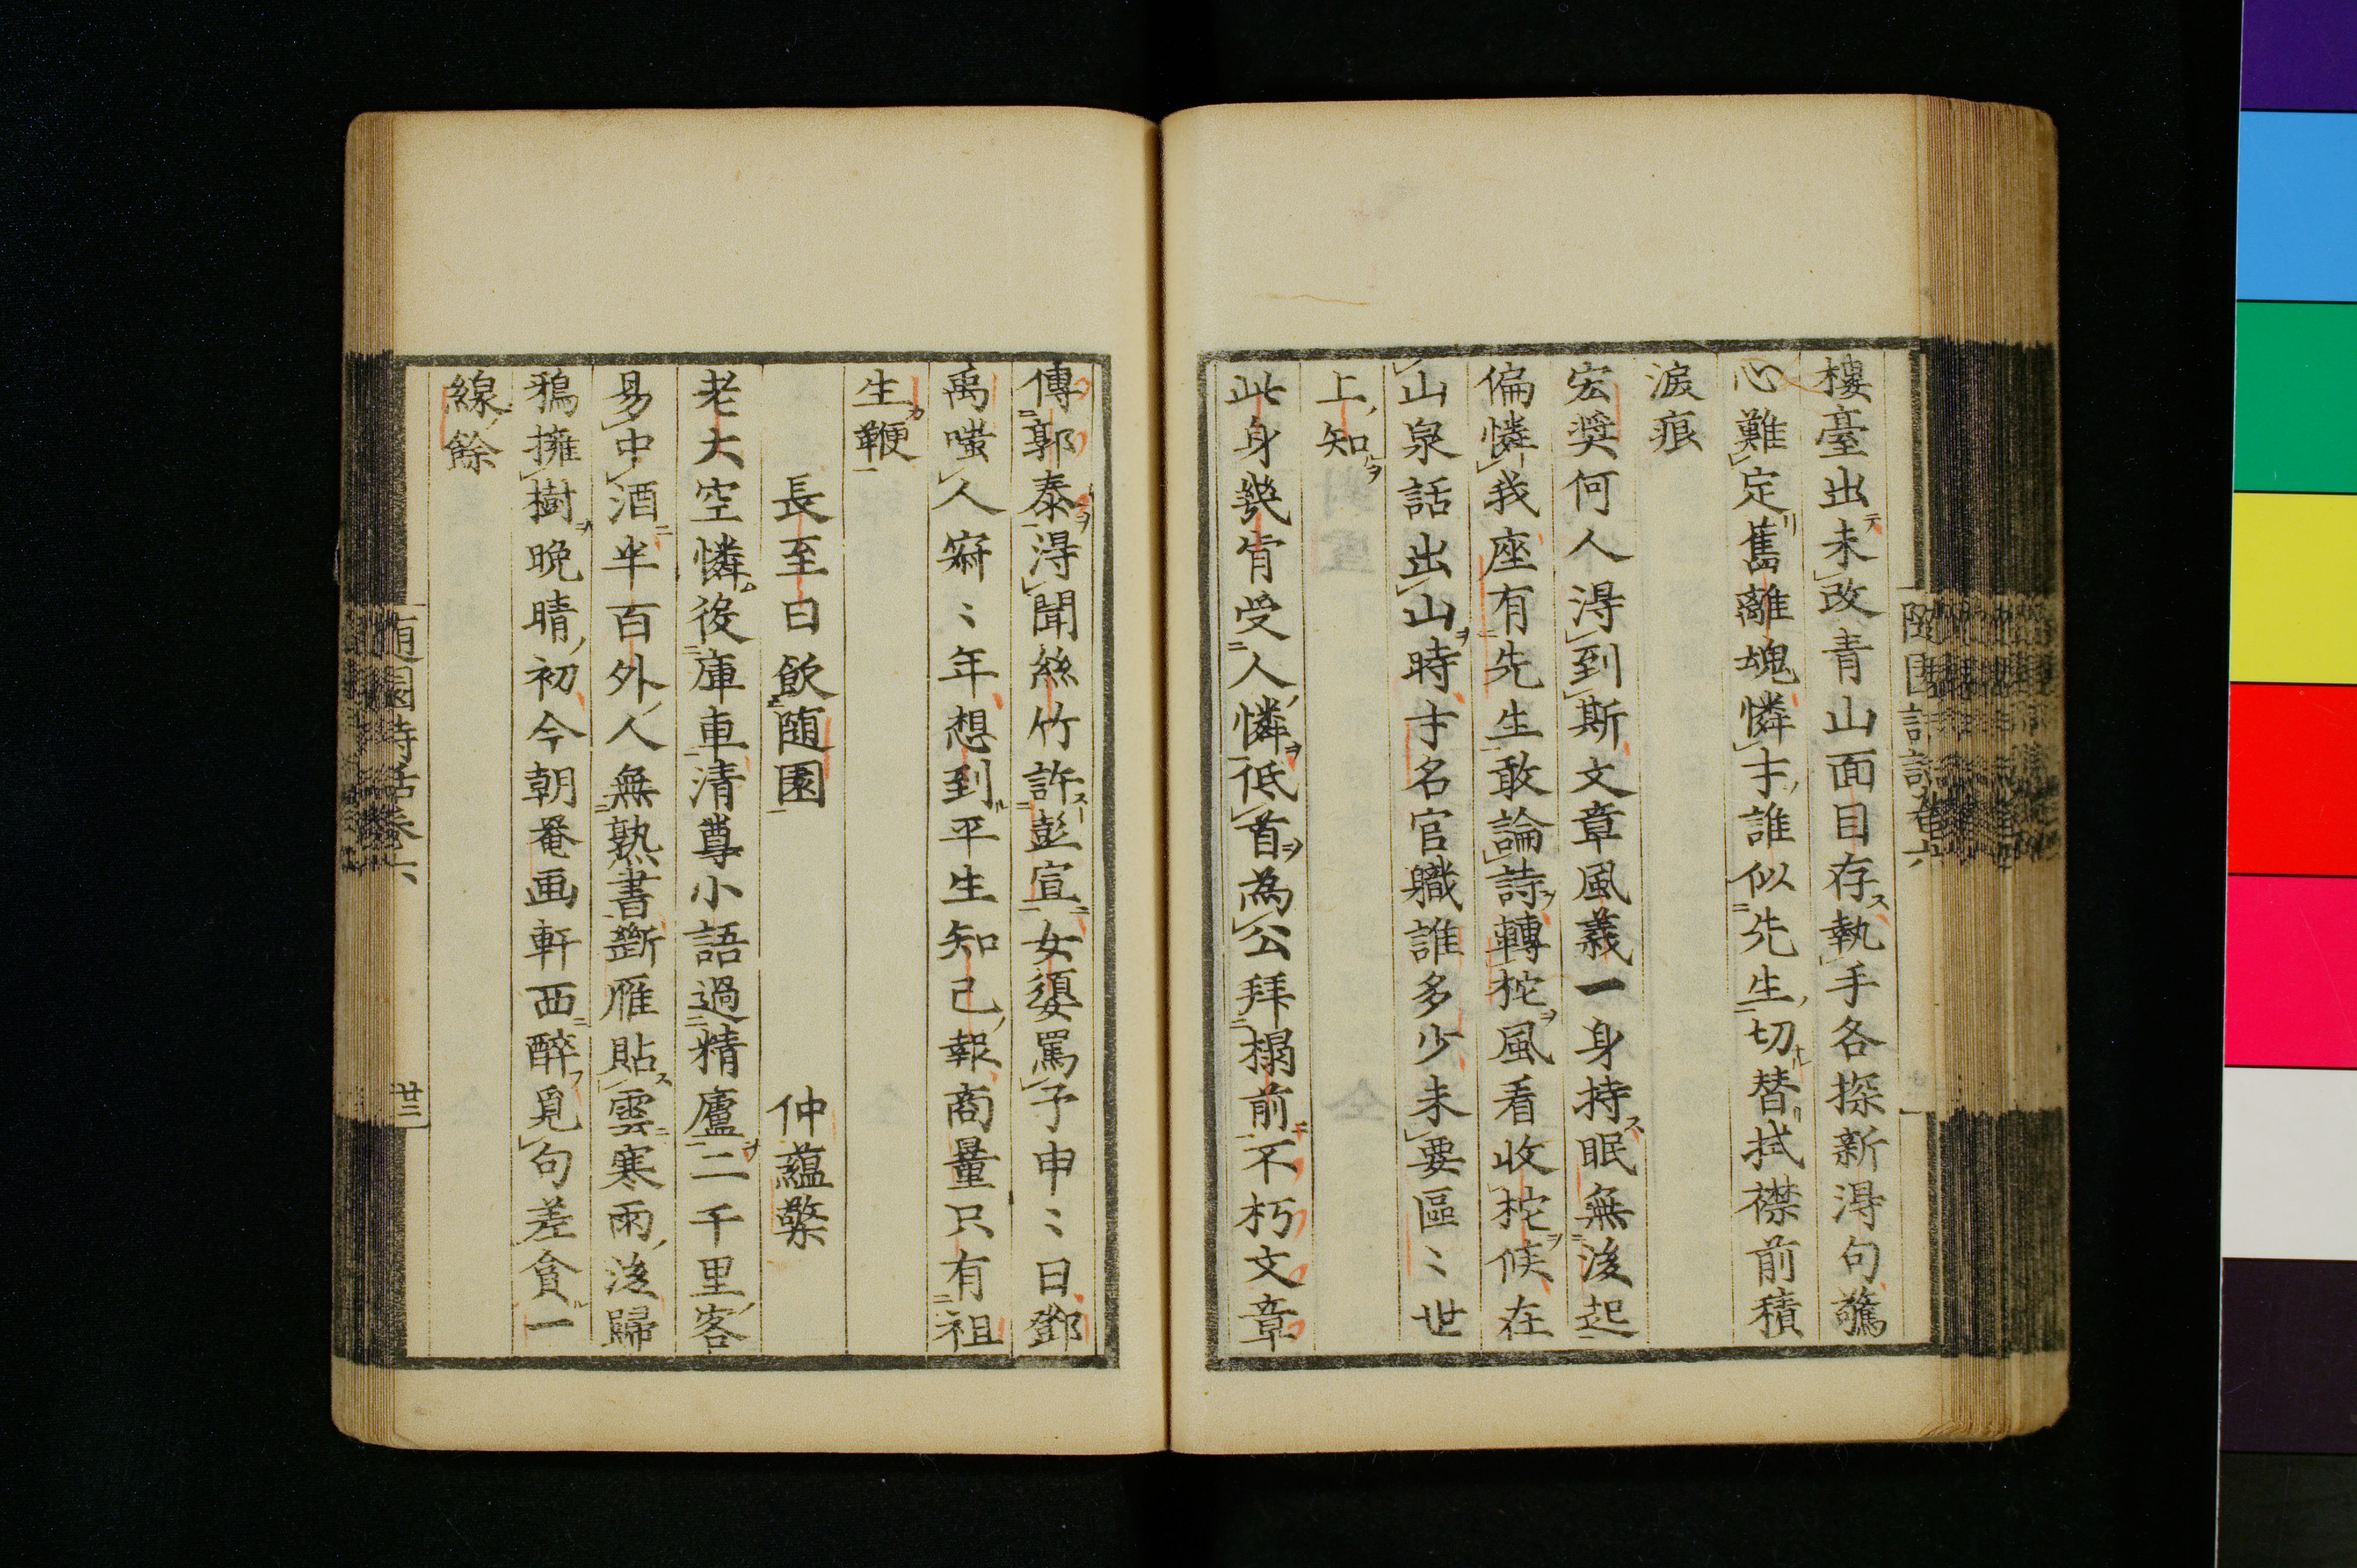 樓臺出未改青山面目存執手各探新淂句驚
心難定舊離魂憐才誰似先生切替拭襟前積
淚痕
宏奨何人淂到斯文章風義一身持眠無後起
偏憐我座有先生敢論詩轉柁風看收柁候在
山泉話出山時才名官職誰多少未要區〻世
上知
此身幾肯受人憐低首為公拜榻前不朽文章
傳郭泰淂聞絲竹許彭宣女媭罵予申〻日鄧
禹嗤人寂〻年想到平生知己報商量只有祖
生鞭
長至日飲随園　仲蘊檠
老大空憐後庫車清尊小語過精廬二千里客
易中酒半百外人無熟書斷雁貼雲寒雨後歸
鴉擁樹晩晴初今朝菴画軒西醉覓句差貪一
線餘
随園詩話巻六
廿三